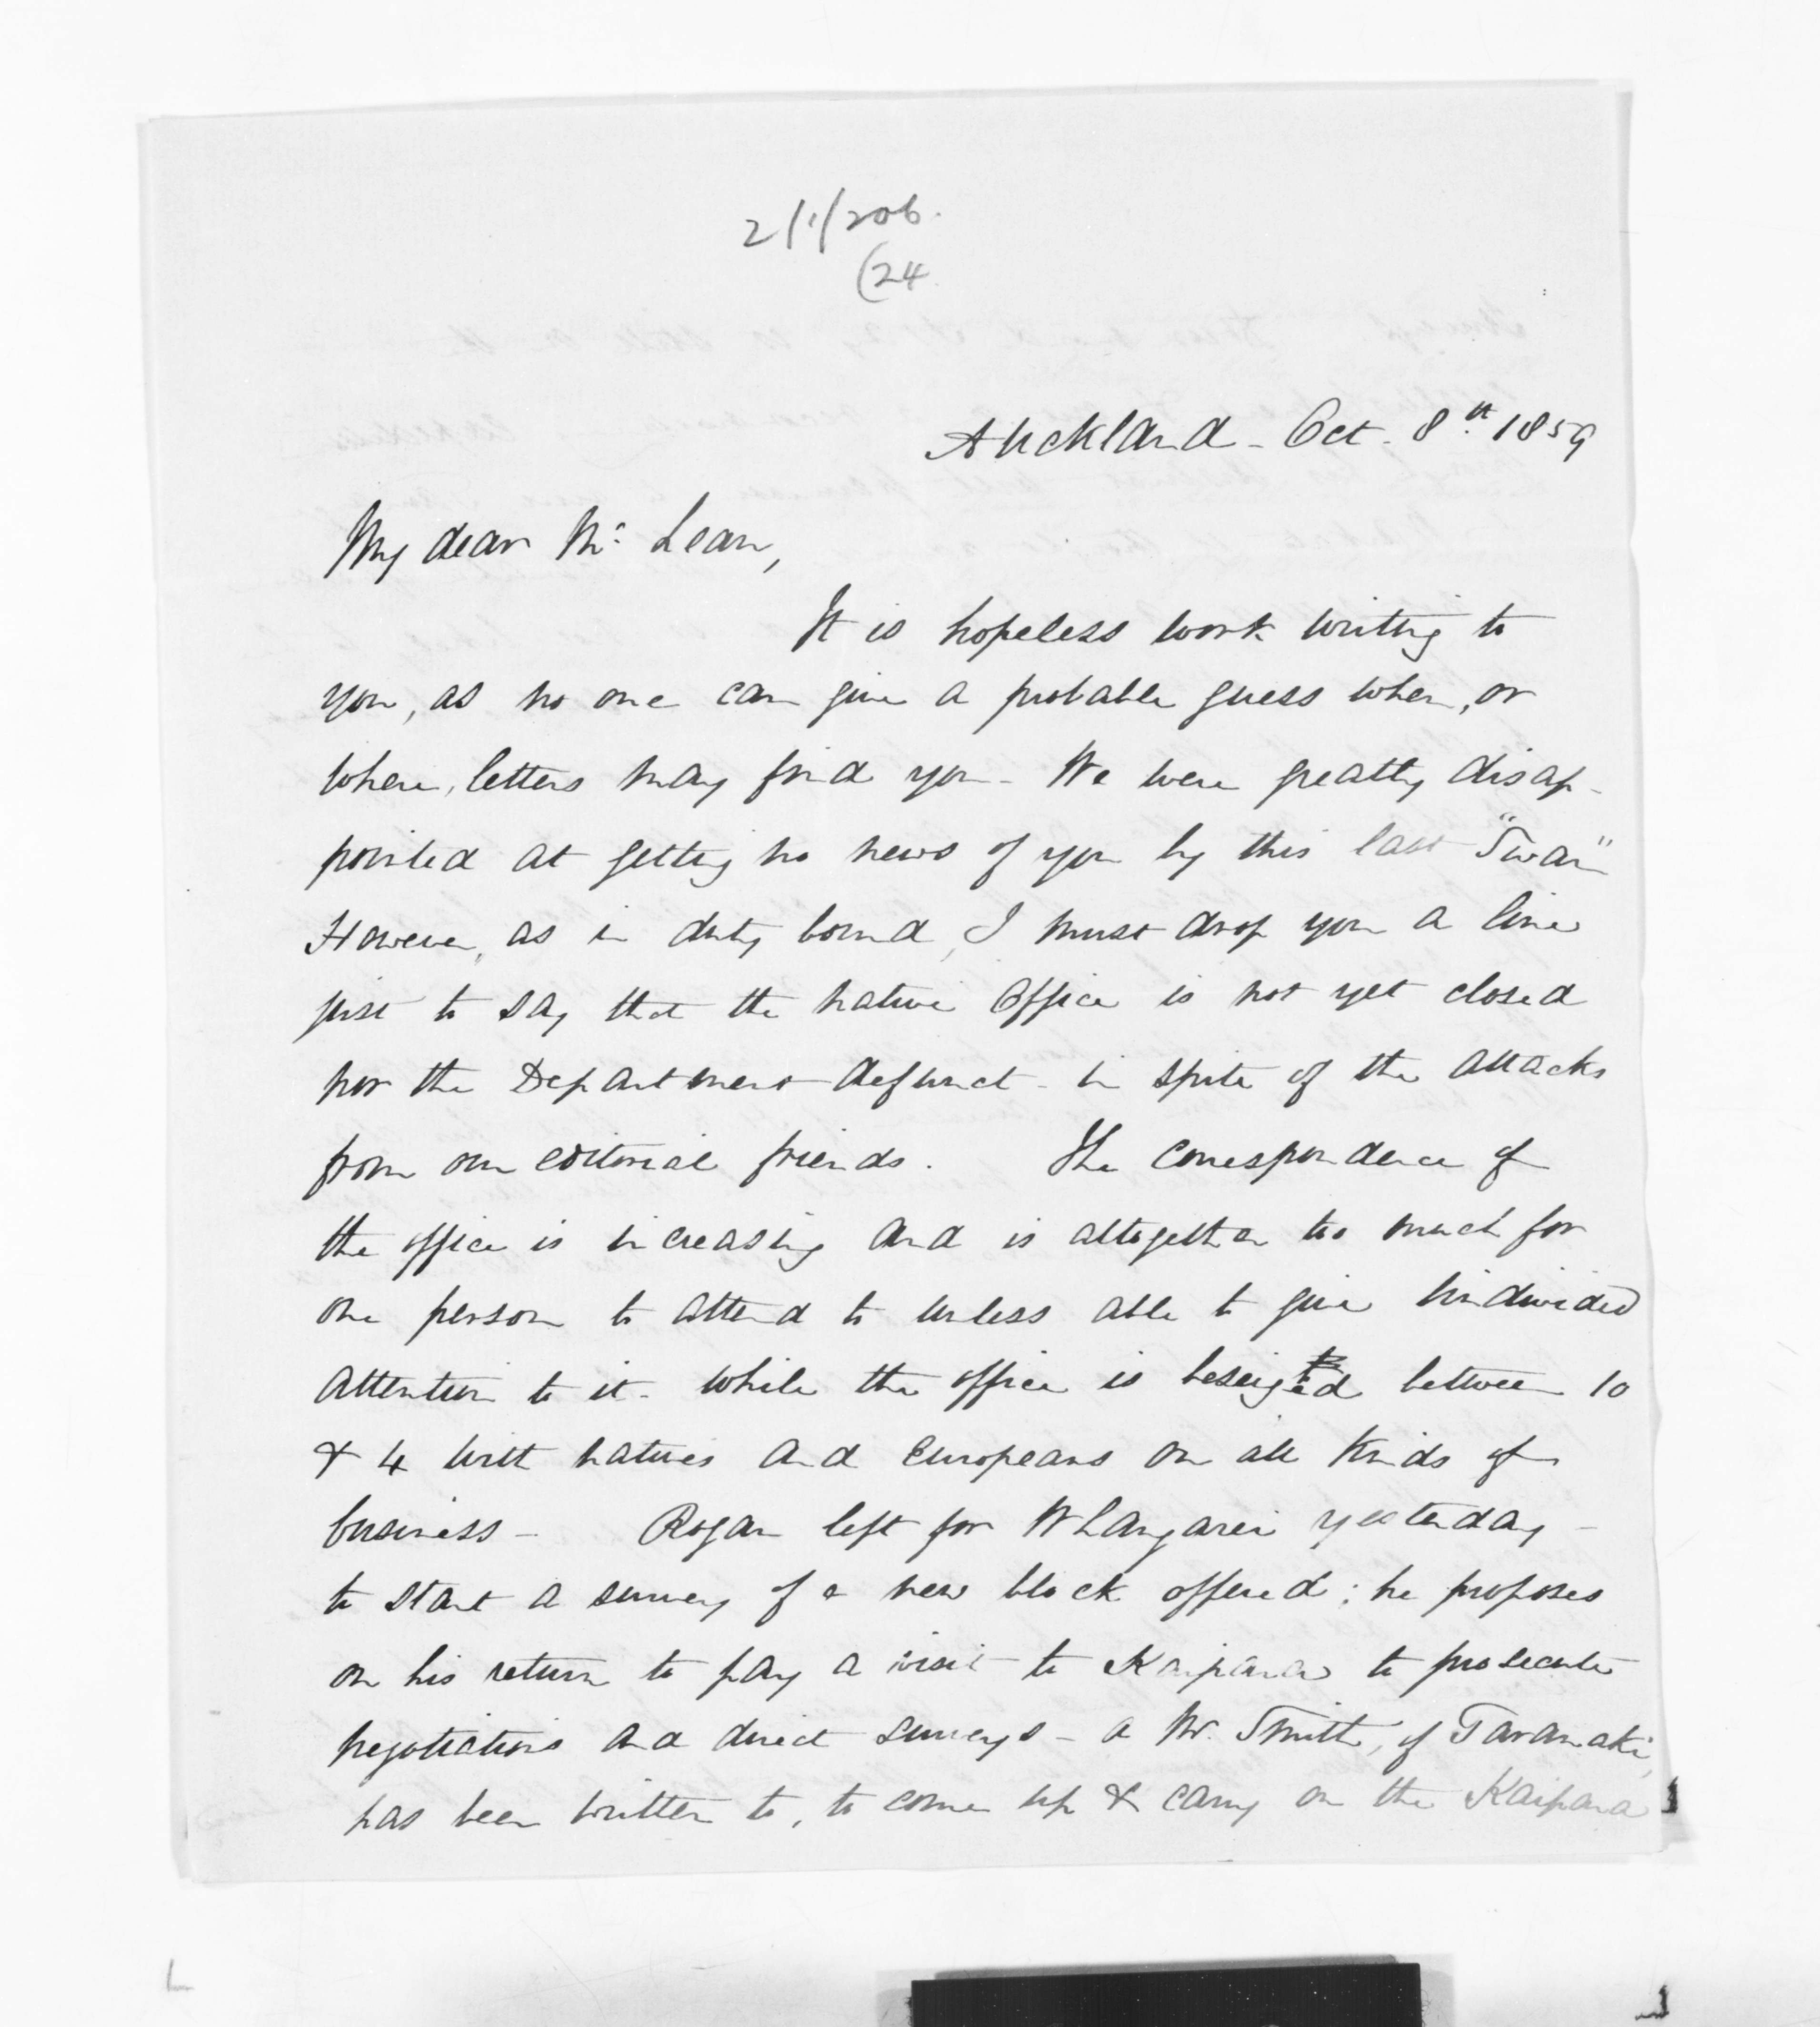 2/1/206.
(24
Auckland - Oct. 8th 1859
My dear Mc Lean,
It is hopeless work writing to
you, as no one can give a probable guess when, or
where, letters may find you - We were greatly disap-
pointed at getting no news of you by this last "Swan"
However, as in duty bound, I must drop you a line
just to say that the native Office is not yet closed
nor the Department defunct - in spite of the attacks
from our editorial friends. The correspondence of
the office is increasing and is altogether too much for
one person to attend to unless able to give undivided
attention to it - while the office is beseiged between 10
& 4 with natives and Europeans on all kinds of
business - Rogan left for Whangarei yesterday -
to start a survey of a new block offered; he proposes
on his return to pay a visit to Kaipara to prosecute
negotiations and direct surveys - a Mr. Smith, of Taranaki,
has been written to, to come up & carry on the Kaipara